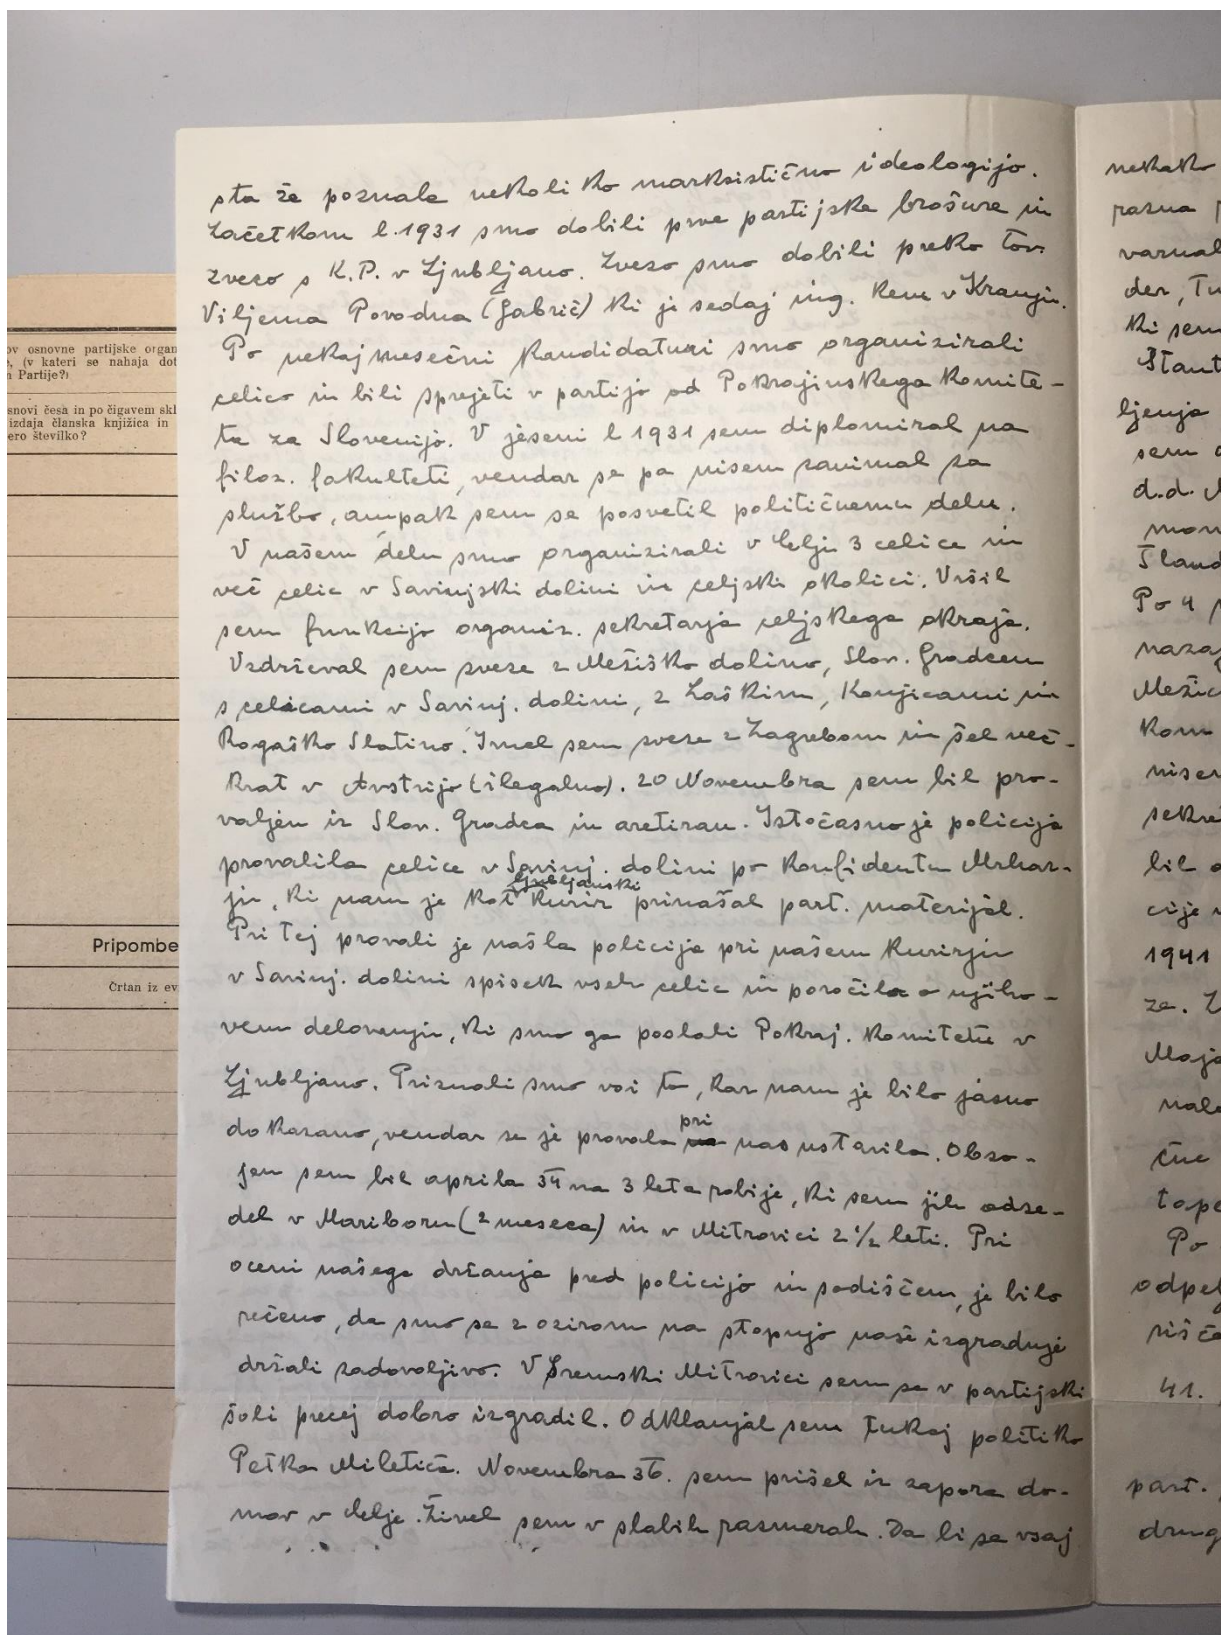 ov osnovne partijske organ
, (v kateri se nahaja dot
Partije?)
snovi česa in po čigavem skl
izdaja članska knjižica in
ero številko?
Pripombe
Črtan iz ev
sta že poznala nekoliko marksistično ideologijo.
Začetkom l. 1931 smo dobili prve partijske brošure in
zvezo s K.P. v Ljubljano. Zvezo smo dobili preko tov.
Viljema Povodna (Gabrič) ki je sedaj ing. Kem v Kranju.
Po nekajmesečni kandidaturi smo organizirali
celico in bili sprejeti v partijo od Pokrajinskega Komite-
ta za Slovenijo. V jeseni l 1931 sem diplomiral na
filoz. fakulteti, vendar se pa nisem zanimal za
službo, ampak sem se posvetil političnemu delu.
V našem delu smo organizirali v Celju 3 celice in
več celic v Savinjski dolini in celjski okolici. Vršil
sem funkcijo organiz. sekretarja celjskega okraja.
Vzdrževal sem zveze z Mežiško dolino, Slov. Gradcem
s celicami v Savinj. dolini, z Laškim, Konjicami in
Rogaško Slatino. Imel sem zveze z Zagrebom in šel več-
krat v Avstrijo (ilegalno). 20 Novembra sem bil pro-
valjen iz Slov. Gradca in aretiran. Istočasno je policija
provalila celice v Savinj. dolini po konfidentu Mrhar-
ju, ki nam je kot ljubljanski kurir prinašal part. materijal.
Pri tej provali je našla policija pri našem kurirju
v Savinj. dolini spisek vseh celic in poročila o njiho-
vem delovanju, ki smo ga poslali Pokraj. komitetu v
Ljubljano. Priznali smo vsi to, kar nam je bilo jasno
dokazano, vendar se je provala pri nas ustavila. Obso-
jen sem bil aprila 34 na 3 leta robije, ki sem jih odse-
del v Mariboru (2 meseca) in v Mitrovici 2 ½ leti. Pri
oceni našega držanja pred policijo in sodiščem, je bilo
rečeno, da smo se z ozirom na stopnjo naše izgradnje
držali zadovoljivo. V Sremski Mitrovici sem se v partijski
šoli precej dobro izgradil. Odklanjal sem tukaj politiko
Petka Miletića. Novembra 36. sem prišel iz zapora do-
mov v Celje. Živel sem v slabih razmerah. Da bi se vsaj
nekako
razna
varnal
der, Tu
ki sem
Stant
ljenja
sem
d.d.
mon
Šland
Po 4
nazaj
Mežic
kom
nisem
sekre
bil
cije
1941
ze.
Maja
nalo
čne
tope
Po
odpelj
rišče
41.
part.
drug